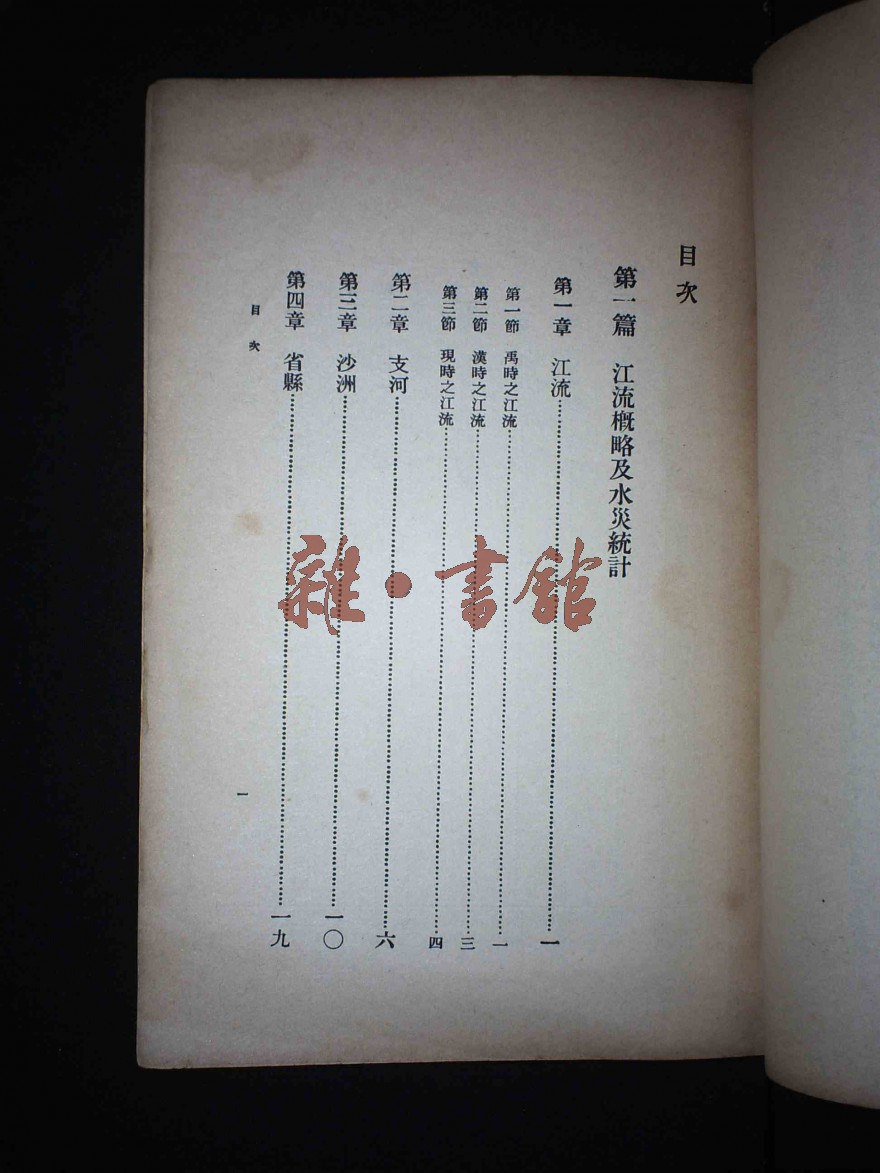 目次
第一篇 江流概略及水災統計
第一章 江流……一
第一節 禹時之江流……一
第二節 漢時之江流……三
第三節 現時之江流……四
第二章 支河……六
第三章 沙洲……一〇
第四章 省縣……一九
目次
一
雜·書館